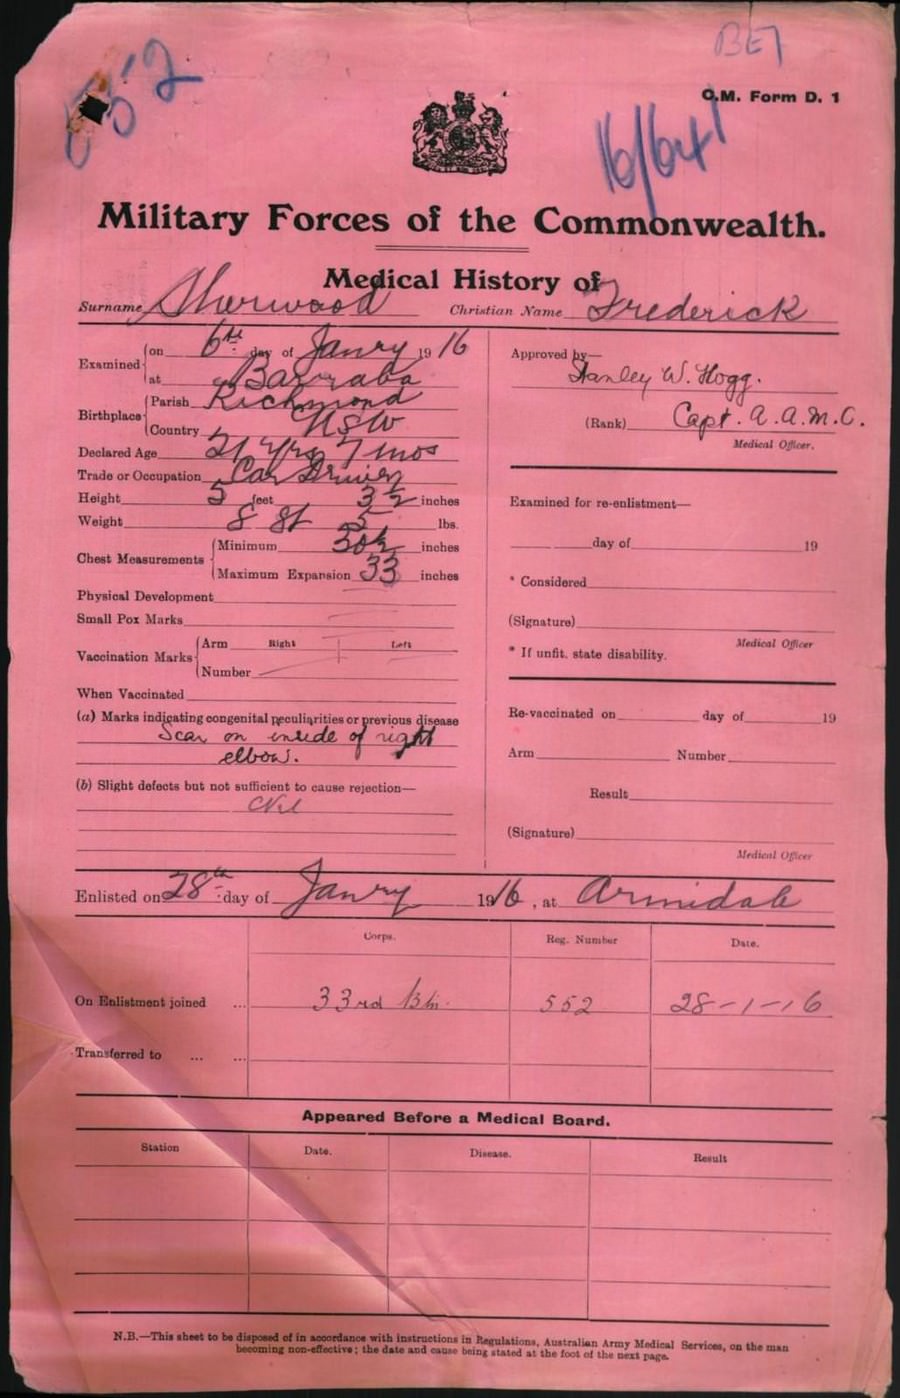 552
BE7
O.M. Form D. 1
16/641
Military Forces of the Commonwealth.
Medical History of
Surname Sherwood Christian Name Frederick
Examined on 6th day of Janry 1916
at Barraba
Birthplace Parish Richmond
Country NSW
Declared Age 21 yrs 7 mos
Trade or Occupation Car Driver
Height 5 feet 3½ inches
Weight 8 st 5 lbs.
Chest Measurements Minimum 30½ inches
Maximum Expansion 33 inches
Physical Development
Small Pox Marks
Vaccination Marks Arm Right Left
Number
When Vaccinated
(a) Marks indicating congenital peculiarities or previous disease
Scar on inside of right
elbow.
(b) Slight defects but not sufficient to cause rejection—
Nil
Approved by—
Stanley W. Hogg.
(Rank) Capt. A.A.M.C.
Medical Officer.
Examined for re-enlistment—
day of 19
* Considered
(Signature)
Medical Officer
* If unfit. state disability.
Re-vaccinated on day of 19
Arm Number
Result
(Signature)
Medical Officer
Enlisted on 28th day of Janry 1916, at Armidale
Corps. Reg. Number Date.
On Enlistment joined ... 33rd Bn. 552 28-1-16
Transferred to ... ...
Appeared Before a Medical Board.
Station Date. Disease. Result
N.B.—This sheet to be disposed of in accordance with instructions in Regulations, Australian Army Medical Services, on the man
becoming non-effective; the date and cause being stated at the foot of the next page.